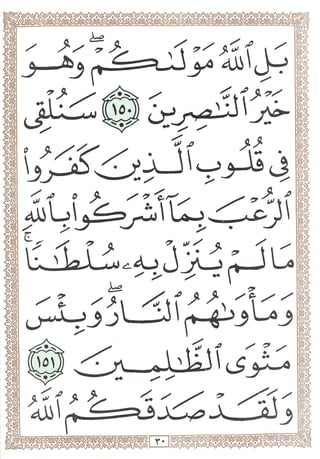 بَلِ ٱللَّهُ مَوْلَىٰكُمْ ۖ وَهُوَ
خَيْرُ ٱلنَّـٰصِرِينَ ١٥٠ سَنُلْقِى
فِى قُلُوبِ ٱلَّذِينَ كَفَرُوا۟
ٱلرُّعْبَ بِمَآ أَشْرَكُوا۟ بِٱللَّهِ
مَا لَمْ يُنَزِّلْ بِهِۦ سُلْطَـٰنًا ۖ
وَمَأْوَىٰهُمُ ٱلنَّارُ ۖ وَبِئْسَ
مَثْوَى ٱلظَّـٰلِمِينَ ١٥١
وَلَقَدْ صَدَقَكُمُ ٱللَّهُ
٣٠